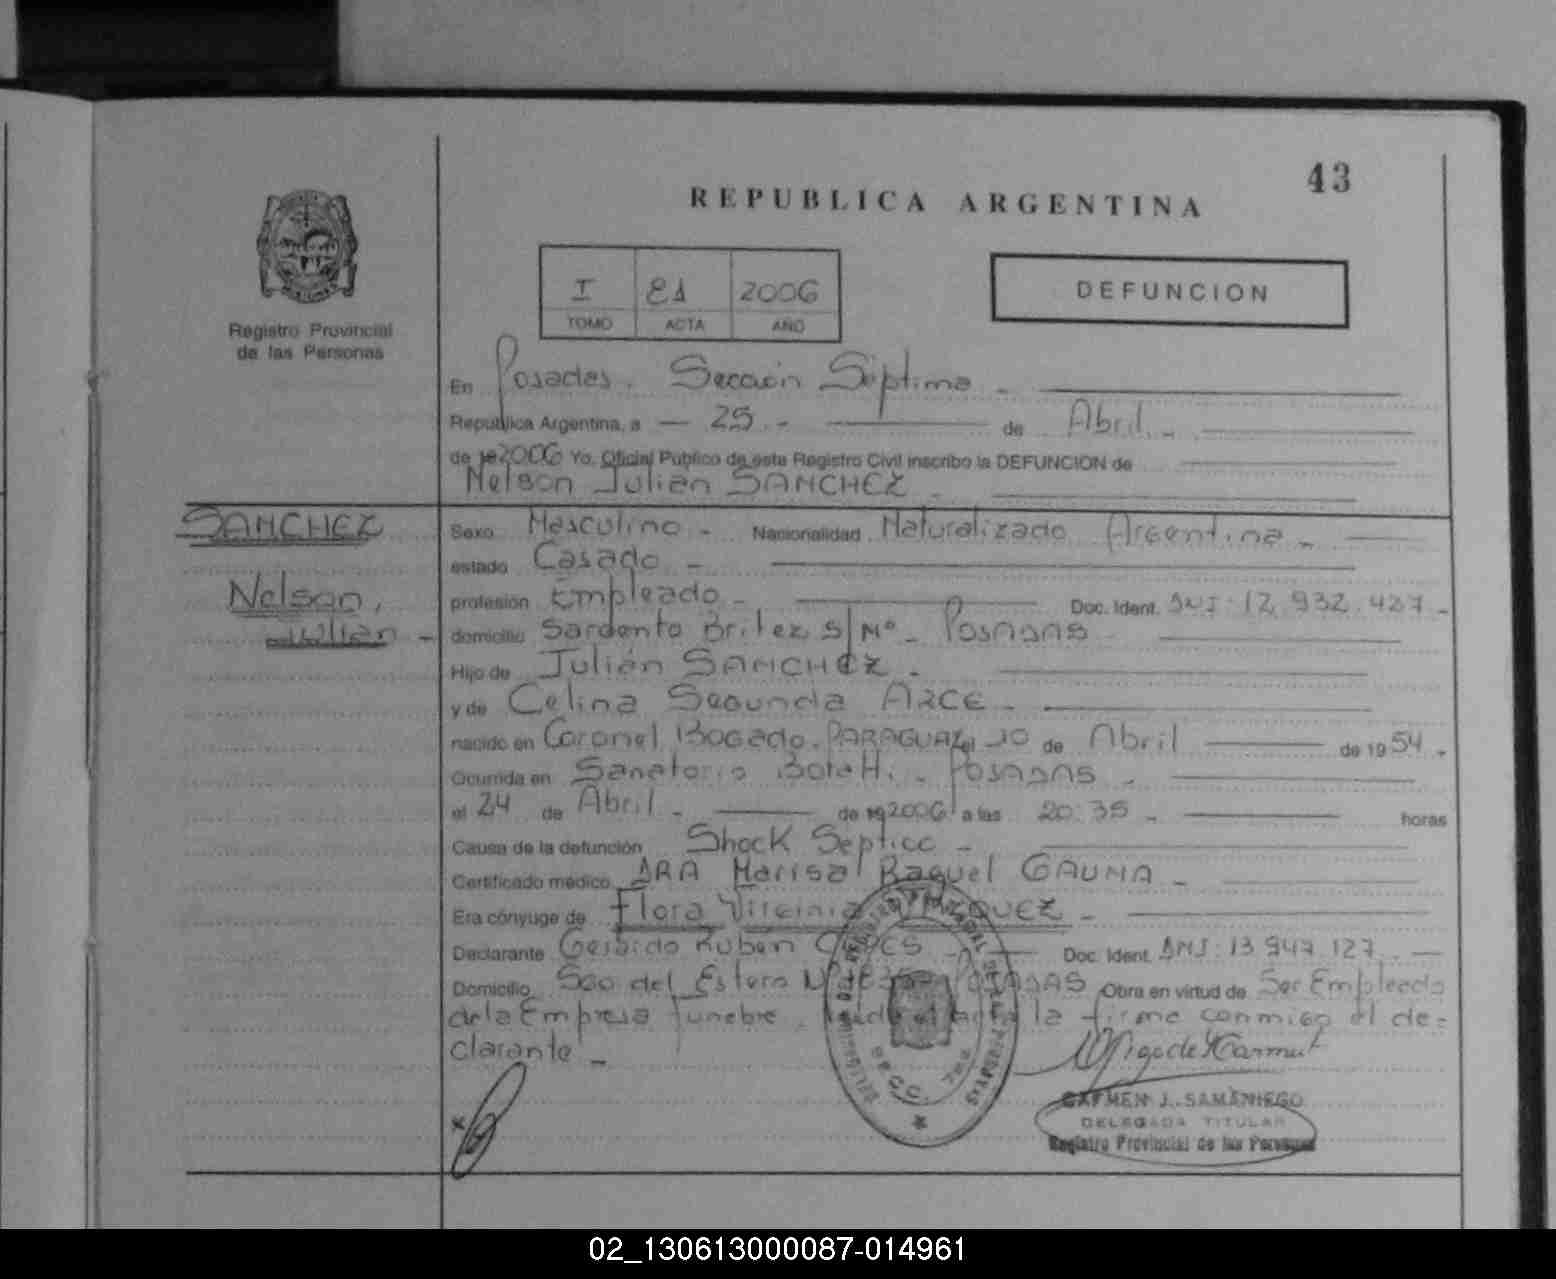 43
REPUBLICA ARGENTINA
I 81 2006
TOMO ACTA AÑO
DEFUNCION
Registro Provincial
de las Personas
En Posadas. Sección Séptima -
República Argentina, a - 25 - de Abril -
de 2006 Yo, Oficial Público de este Registro Civil inscribo la DEFUNCION de
Nelson Julián SANCHEZ -
SANCHEZ
Nelson,
Julián -
Sexo Masculino - Nacionalidad Naturalizado Argentina -
estado Casado -
profesión Empleado - Doc. Ident. DNI: 12.932.427 -
domicilio Sardento Britez S/Nº - POSADAS -
Hijo de Julián SANCHEZ -
y de Celina Segunda ARCE -
nacido en Coronel Bogado. PARAGUAY el 10 de Abril de 1954 -
Ocurrida en Sanatorio Botetti - POSADAS -
el 24 de Abril - de 2006 a las 20:35 - horas
Causa de la defunción Shock Septico -
Certificado médico DRA Marisa Raquel GAUNA -
Era cónyuge de Flora Virginia -
Declarante Gerardo Ruben Doc. Ident. DNI: 13.947.127 -
Domicilio Sgo del Estero Nº POSADAS Obra en virtud de Ser Empleado
de la Empresa funebre. la firma conmigo el de=
clarante -
CARMEN J. SAMANIEGO
DELEGADA TITULAR
Registro Provincial de las Personas
02_130613000087-014961